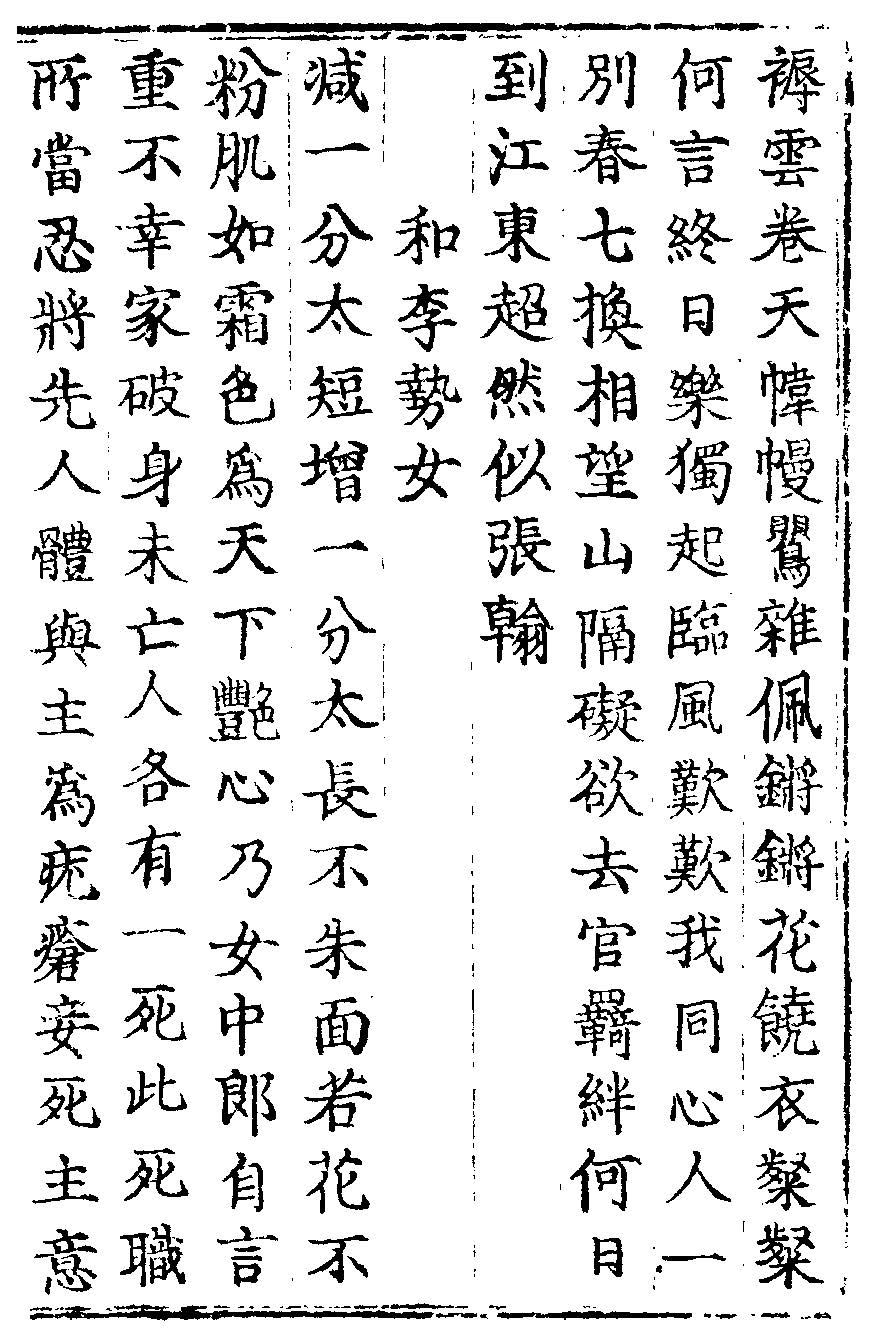 褥雲卷天幃幔鸎雜佩鏘鏘花饒衣粲粲
何言終日樂獨起臨風歎歎我同心人一
別春七換相望山隔礙欲去官羈絆何日
到江東超然似張翰
和李勢女
減一分太短增一分太長不朱面若花不
粉肌如霜色爲天下艷心乃女中郎自言
重不幸家破身未亡人各有一死此死職
所當忍將先人體與主爲疣瘡妾死主意